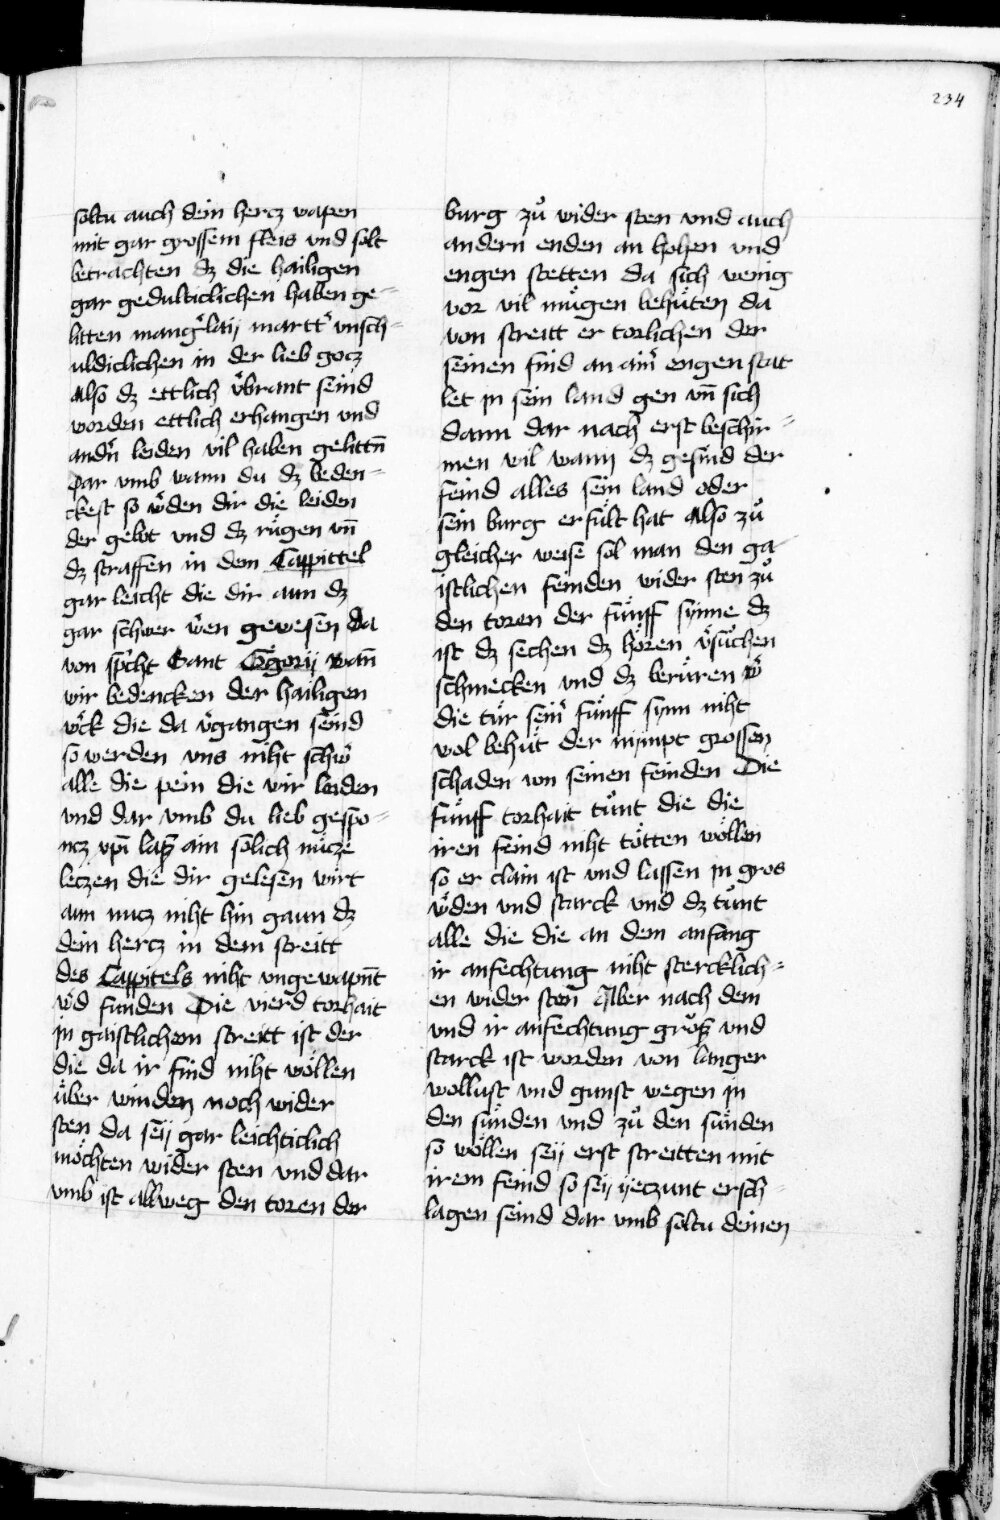 234
soltu auch dein hercz wapen
mit gar grossem fleis vnd solt
betrachten dz die hailigen
gar gedulticlichen haben ge=
litten mang͛laij martt͛ vnsch=
uldiclichen in der lieb gocz
Also dz ettlich v͛brant seind
worden ettlich erhangen vnd
and͛n leiden vil haben gelittn̄
Dar vmb wann du dz beden=
ckest so w͛den dir die leiden
der gelot vnd dz rügen vn̄
dz straffen in dem Cappittel
gar leicht die dir aun dz
gar schwer w͛en gewesen Da
von sp͛cht Sant G͛gorij wan̄
wir bedencken der hailigen
w͛ck die da v͛gangen seind
so werden vns niht schw͛
alle die pein die wir leiden
vnd dar vmb du lieb gespo=
ncz vn̄ laß ain solich nücze
leczen die dir gelesen wirt
am nucz niht hin gaun dz
dein hercz in dem streitt
des Cappitels niht vngewapn̄t
w͛d funden Die vierd torhait
in gaistlichem streitt ist der
die da ir find niht wöllen
über winden noch wider
sten da seij gar leichticlich
möchten wider sten vnd dar
vmb ist allweg den toren der
burg zů wider sten vnd auch
andern enden an hohen vnd
engen stetten da sich wenig
vor vil mügen behüten da
von streitt er torlichen der
seinen find an ain͛ engen stat
let in sein land gen vn̄ sich
dann dar nach erst beschir=
men wil wann dz gesind der
feind alles sein land oder
sein burg erfült hat Also zů
gleicher weise sol man den ga
istlichen feinden wider sten zů
den toren der fünff synne dz
ist dz sechen dz hören v͛sůchen
schmecken vnd dz berüren w͛
die tür sein͛ fünff synn niht
wol behüt der nympt grossen
schaden von seinen feinden Die
fünff torhait tůnt die die
iren feind niht tötten wöllen
so er clain ist vnd lassen in gros
w͛den vnd starck vnd dz tůnt
alle die die an dem anfang
ir anfechtung niht stercklich=
en wider sten Aber nach dem
vnd ir anfechtung größ vnd
starck ist worden von langer
wollust vnd gunst wegen in
den sünden vnd zů den sünden
so wöllen seij erst streitten mit
irem feind so seij ijeczunt ersch=
lagen seind dar vmb soltu deinen